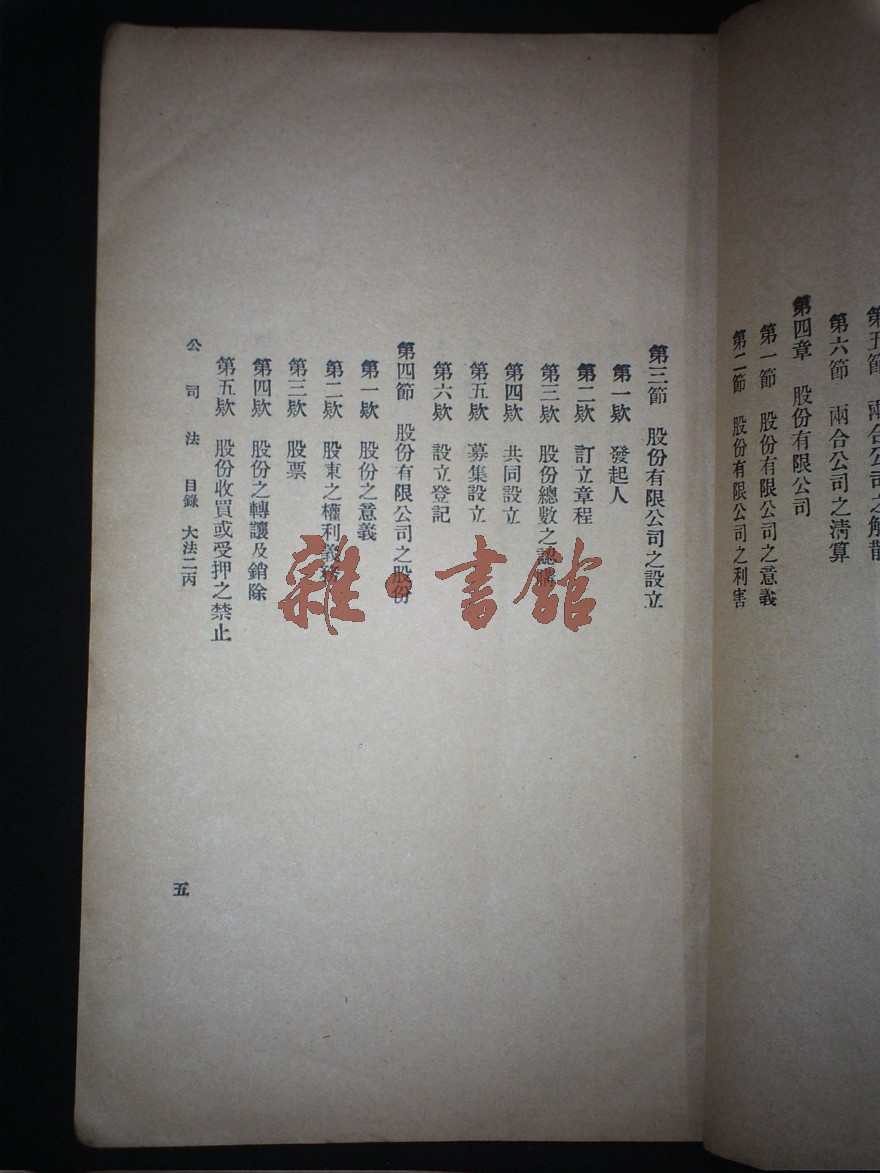 第五節　兩合公司之解散
第六節　兩合公司之淸算
第四章　股份有限公司
第一節　股份有限公司之意義
第二節　股份有限公司之利害
第三節　股份有限公司之設立
第一欵　發起人
第二欵　訂立章程
第三欵　股份總數之認購
第四欵　共同設立
第五欵　募集設立
第六欵　設立登記
第四節　股份有限公司之股份
第一欵　股份之意義
第二欵　股東之權利義務
第三欵　股票
第四欵　股份之轉讓及銷除
第五欵　股份收買或受押之禁止
公司法　目錄　大法二丙
五
雜·書館